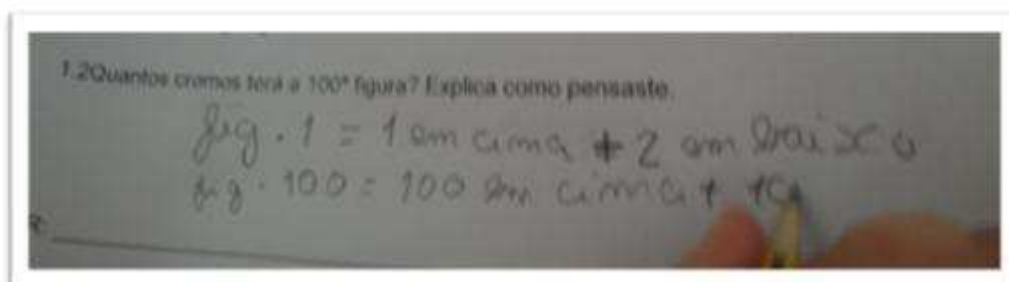 1.2Quantos cromos terá a 100ª figura? Explica como pensaste.
fig. 1 = 1 em cima + 2 em baixo
fig. 100 = 100 em cima + 10